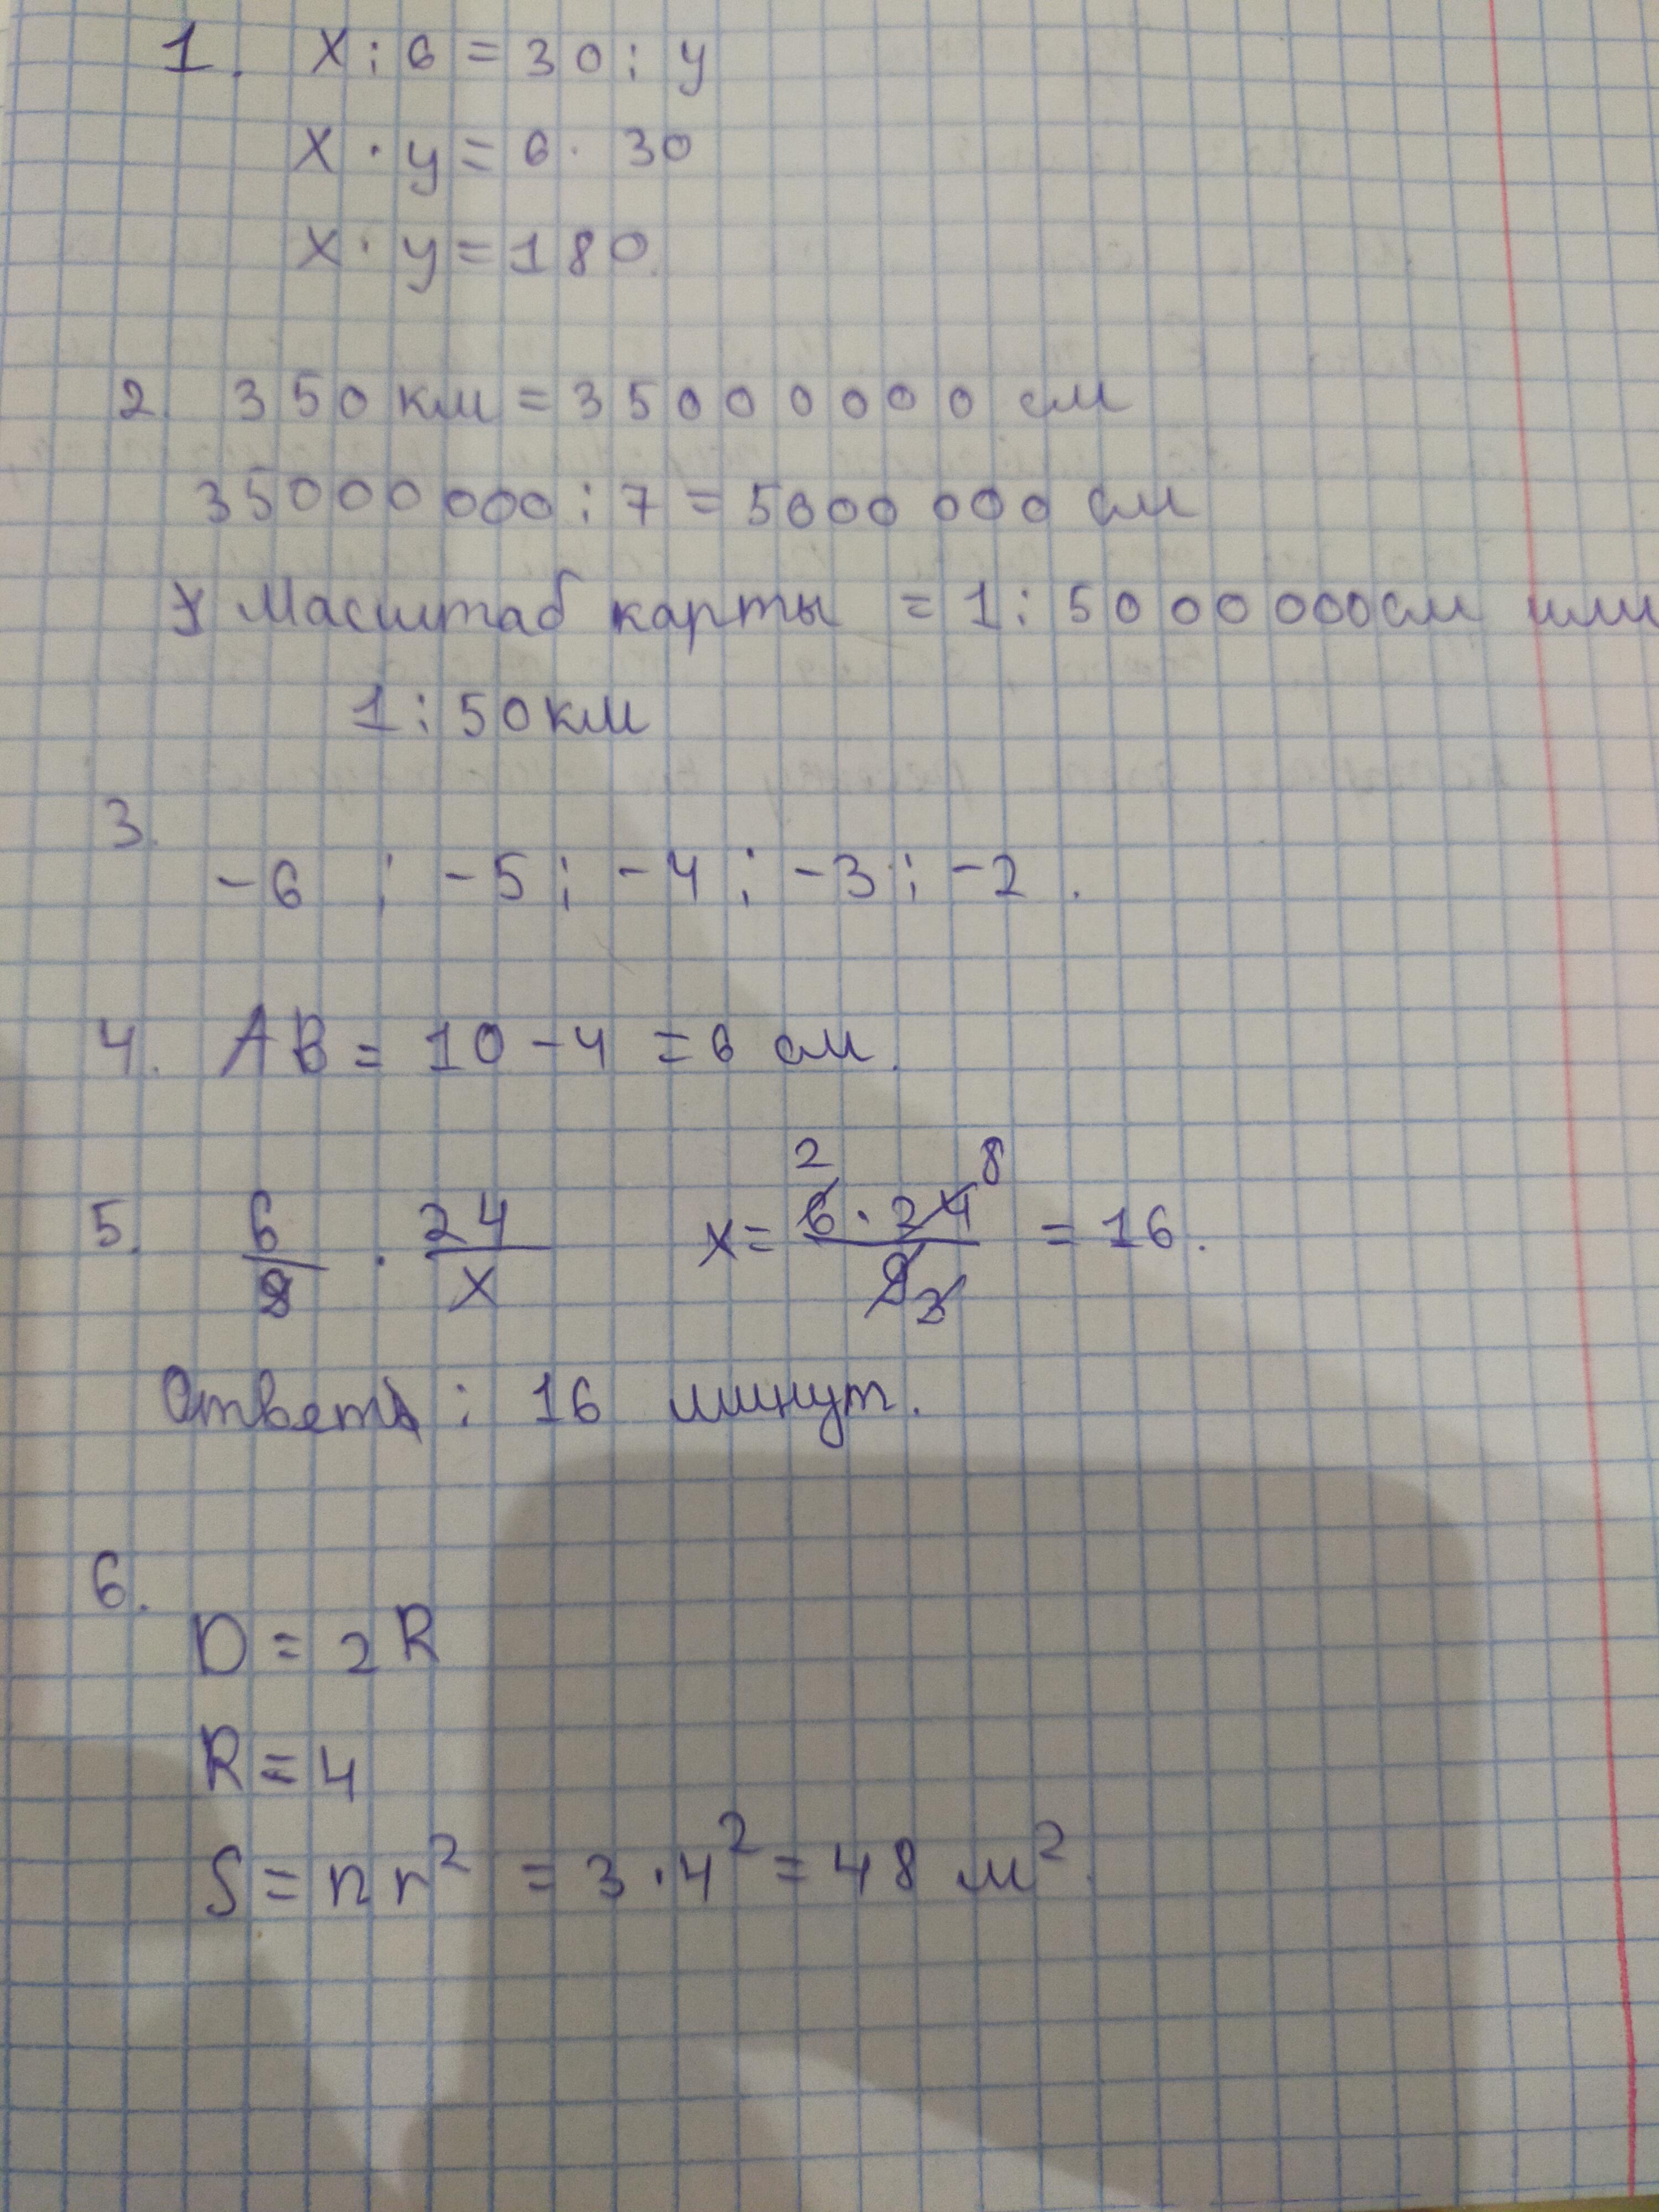 1. x : 6 = 30 : y
x · y = 6 · 30
x · y = 180.
2. 350 км = 35000000 см
35000000 : 7 = 5000 000 см
Масштаб карты = 1 : 5000 000 см или
1 : 50 км
3.
-6 ; -5 ; -4 ; -3 ; -2 .
4. AB = 10 - 4 = 6 см.
5. 6/9 · 24/x x = 6 · 24/9 = 16.
2 8 3
Ответ : 16 минут.
6.
D = 2R
R = 4
S = πr² = 3 · 4² = 48 м².